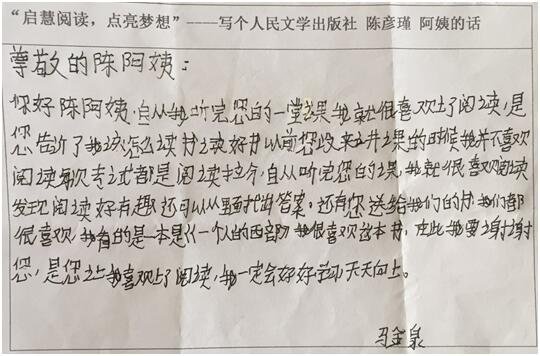 “启慧阅读，点亮梦想”——写个人民文学出版社 陈彦瑾 阿姨的话
尊敬的陈阿姨：
你好陈阿姨，自从我听完您的一堂课我就很喜欢上了阅读，是
您告诉了我该怎么读书读好书以前您没来上课的时候我并不喜欢
阅读每次考试都是阅读扣分，自从听完您的课我就很喜欢阅读
发现阅读好有趣还可以从里面找出答案。还有您送给我们的书我们都
很喜欢 我看的是一本是《一个人的西部》我很喜欢这本书，在此我要谢谢
您，是您让我喜欢上了阅读，我一定会好好学习天天向上。
马金泉